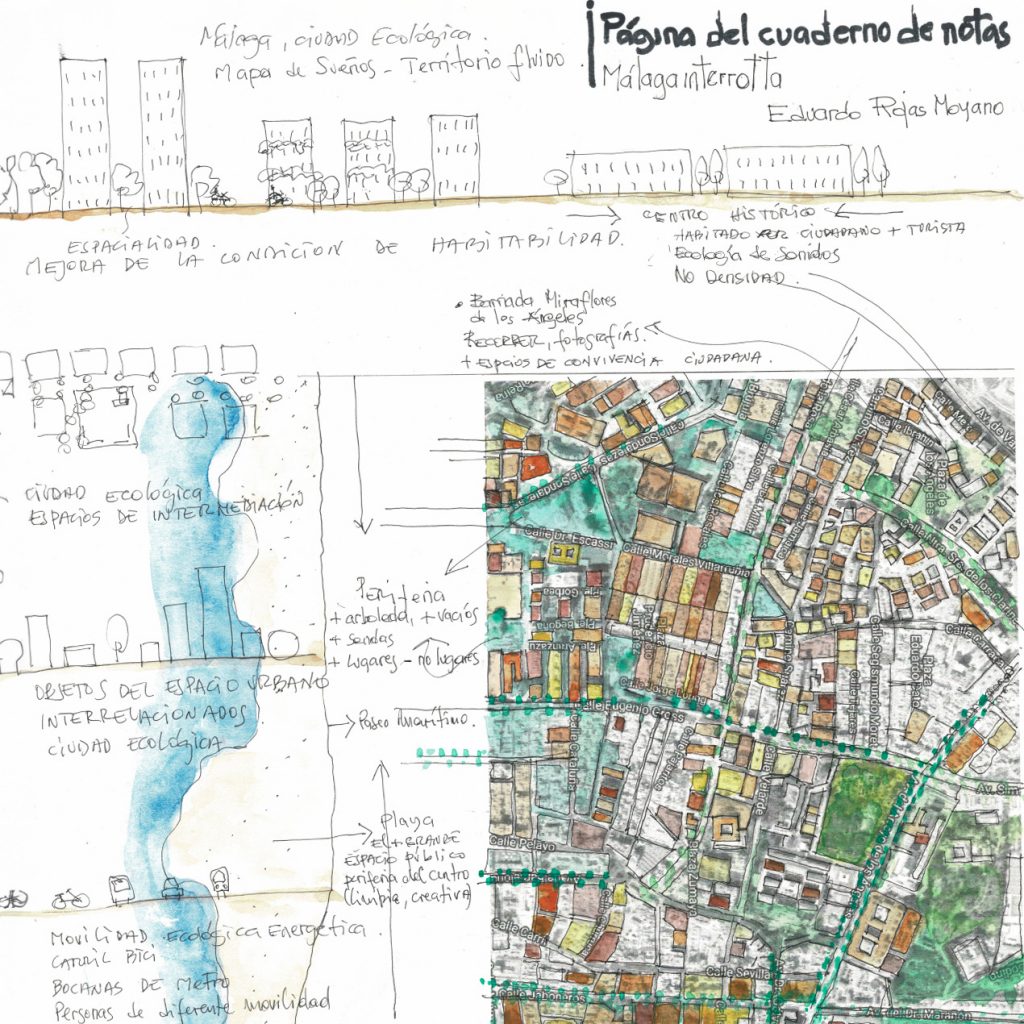 Página del cuaderno de notas
Málagainterrotta
Eduardo Rojas Moyano
Málaga, ciudad Ecológica.
Mapa de Sueños - Territorio fluido.
ESPACIALIDAD.
MEJORA DE LA CONDICION DE HABITABILIDAD.
CENTRO HISTÓRICO
HABITADO POR CIUDADANO + TURISTA
Ecología de Sonidos
NO DENSIDAD.
Barriada Miraflores
de los Ángeles
fotografías.
+ ESPACIOS DE CONVIVENCIA CIUDADANA.
CIUDAD ECOLÓGICA
ESPACIOS DE INTERMEDIACIÓN
Periferia
+ arbolada, + vacíos
+ sendas
+ Lugares - no lugares
OBJETOS DEL ESPACIO URBANO
INTERRELACIONADOS.
CIUDAD ECOLÓGICA
Paseo marítimo.
Playa
El + GRANDE
ESPACIO PÚBLICO
periferia del Centro
(limpia, creativa)
MOVILIDAD. Ecológica Energética.
CARRIL BICI
BOCANAS DE METRO
Personas de diferente movilidad
Av. de
Calle Ibrahim
Plaza de
los Ángeles
Calle Dr. Escassi
Calle Morales Villarrubia
Pje. Gorbea
Pje. Begoña
Pje. Aranzazu
Calle Jorge
Calle Eugenio Gross
Calle Cataluña
Calle Velarde
Calle Segismundo Moret
Plaza
Eduardo
Calle Ntra. Sra. de los Clar
Calle Carrera
Av. Sim
Calle Pelayo
Calle Carril
Calle Sevilla
Calle Jaboneros
Av. del Dr. Marañón